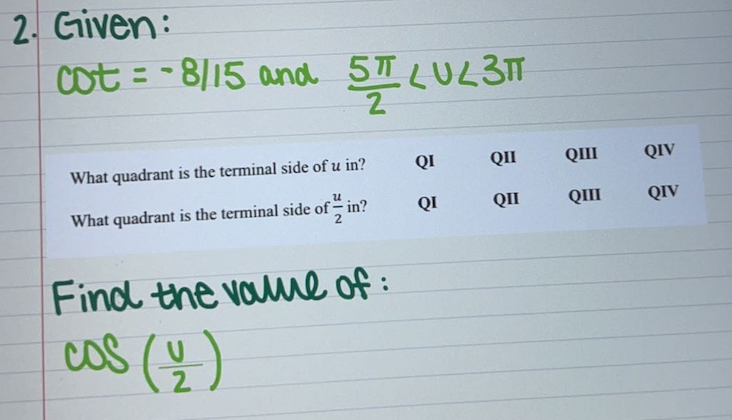 2. Given:
cot = -8/15 and 5π/2 < U < 3π
What quadrant is the terminal side of u in? QI QII QIII QIV
What quadrant is the terminal side of u/2 in? QI QII QIII QIV
Find the value of:
cos (U/2)